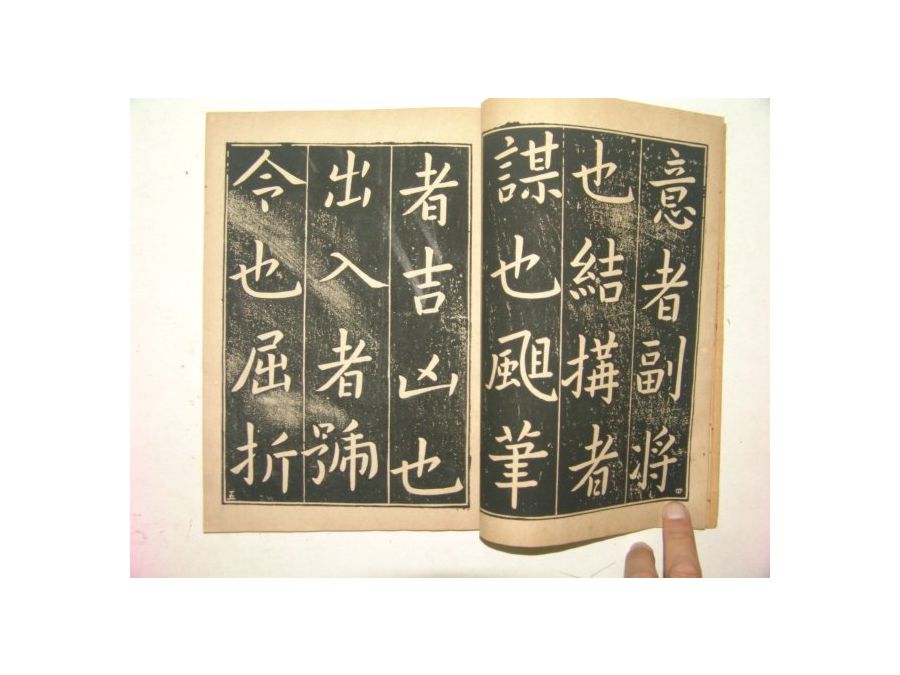 意者副将
也結搆者
謀也筆
者吉凶也
出入者號
令也屈折
四
五